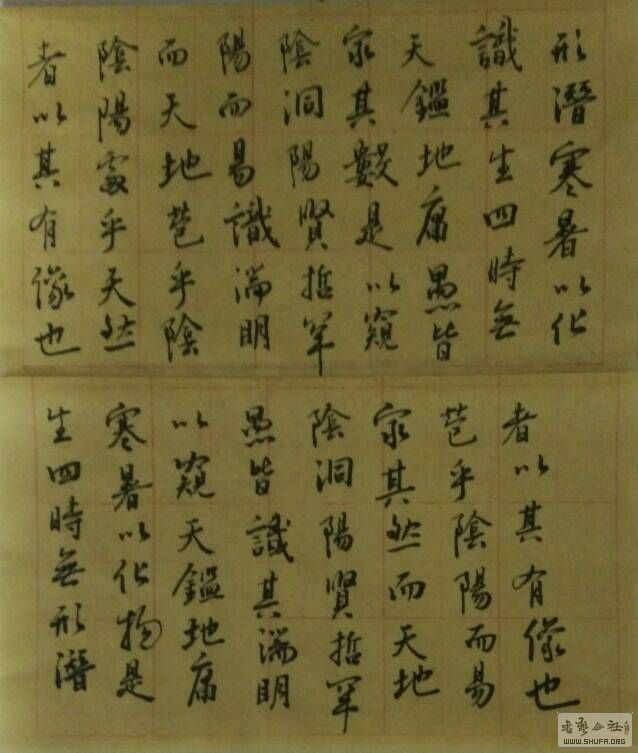 形潛寒暑以化
識其生四時無
天鑑地庸愚皆
窮其數是以窺
陰洞陽賢哲罕
陽而易識湍明
而天地苞乎陰
陰陽處乎天然
者以其有像也
者以其有像也
苞乎陰陽而易
窮其然而天地
陰洞陽賢哲罕
愚皆識其湍明
以窺天鑑地庸
寒暑以化物是
生四時無形潛
WWW.SHUFA.ORG